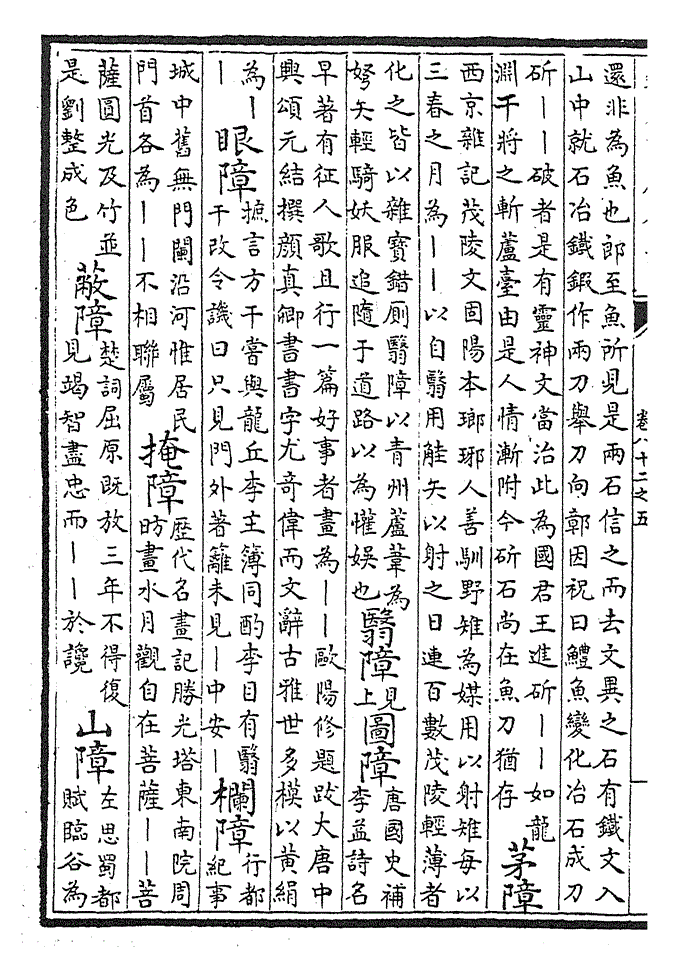 卷八十二之五
還非為魚也郎至魚所見是兩石信之而去文異之石有鐵文入
山中就石冶鐵鍛作兩刀舉刀向鄣因祝曰鱧魚變化冶石成刀
斫丨丨破者是有靈神文當治此為國君王進斫丨丨如龍
淵干將之斬蘆臺由是人情漸附今斫石尚在魚刀猶存
茅障
西京雜記茂陵文固陽本瑯琊人善馴野雉為媒用以射雉每以
三春之月為丨丨以自翳用觟矢以射之日連百數茂陵輕薄者
化之皆以雜寶錯厠翳障以青州蘆葦為
弩矢輕騎妖服追隨于道路以為懽娛也
翳障
見
上
圖障
唐國史補
李益詩名
早著有征人歌且行一篇好事者畫為丨丨歐陽修題跋大唐中
興頌元結撰顏真卿書書字尤奇偉而文辭古雅世多模以黃絹
為丨
丨
眼障
摭言方干嘗與龍丘李主簿同酌李目有翳
干改令譏曰只見門外著籬未見丨中安丨
欄障
行都
紀事
城中舊無門闌沿河惟居民
門首各為丨丨不相聯屬
掩障
歷代名畫記勝光塔東南院周
昉畫水月觀自在菩薩丨丨菩
薩圓光及竹並
是劉整成色
蔽障
楚詞屈原既放三年不得復
見竭智盡忠而丨丨於讒
山障
左思蜀都
賦臨谷為